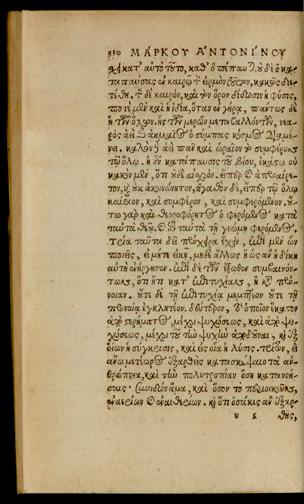 210 ΜΑΡΚΟΥ ΑΝΤΟΝΙΝΟΥ
κατ' αὐτὸ τοῦτο, καθ' ὃ πέπαυται. οὐδὲ ὁ κα-
ταπαύσας ἐν καιρῷ τὸν εἱρμὸν τοῦτον, κακῶς διε-
τέθη. τὸν δὲ καιρόν, καὶ τὸν ὅρον δίδωσιν ἡ φύσις,
ποτὲ μὲν καὶ ἡ ἰδία, ὅταν ἐν γήρᾳ, πάντως δὲ
ἡ τῶν ὅλων. ἧς τῶν μερῶν μεταβαλλόντων, νεα-
ρὸς ἀεὶ καὶ ἀκμαῖος ὁ σύμπας κόσμος διαμέ-
νει. καλὸν δὲ ἀεὶ πᾶν καὶ ὡραῖον τὸ συμφέρον
τῷ ὅλῳ. ἡ οὖν κατάπαυσις τοῦ βίου, ἑκάστῳ οὐ
κακὸν μέν, ὅτι οὐδὲ αἰσχρόν. εἴπερ καὶ ἀπροαίρε-
τον, καὶ οὐκ ἀκοινώνητον, ἀγαθὸν δέ, εἴπερ τῷ ὅλῳ
καίριον, καὶ συμφέρον, καὶ συμφερόμενον. οὕ-
τω γὰρ καὶ θεοφόρητος ὁ φερόμενος κατὰ
ταὐτὰ θεῷ, καὶ ἐπὶ ταὐτὰ τῇ γνώμῃ φερόμενος.
Τρία ταῦτα δεῖ πρόχειρα ἔχειν, ἐπὶ μὲν ὧν
ποιεῖς, εἰ μήτε εἰκῇ, μηδὲ ἄλλως ἢ ὡς ἂν ἡ δίκη
αὐτὴ ἐνήργησεν. ἐπὶ δὲ τῶν ἔξωθεν συμβαινόν-
των, ὅτι ἤτοι κατ' ἐπιτυχίαν, ἢ κατὰ πρό-
νοιαν. οὔτε δὲ τῇ ἐπιτυχίᾳ μεμπτέον οὔτε τῇ
προνοίᾳ ἐγκλητέον. δεύτερον, τὸ ὁποῖον ἕκαστον
ἀπὸ σπέρματος, μέχρι ψυχώσεως, καὶ ἀπὸ ψυ-
χώσεως, μέχρι τοῦ τὴν ψυχὴν ἀποδοῦναι. καὶ ἐξ
οἵων ἡ σύγκρισις, καὶ εἰς οἷα ἡ λύσις. τρίτον, εἰ
ἄνω μετέωρος ἐξαρθεὶς κατασκέψαιο τὰ ἀν-
θρώπεια, καὶ τὴν πολυτροπίαν ὅση κατανοή-
σαις· συνιδὼν ἅμα, καὶ ὅσον τὸ περιοικοῦν,
ἐναερίων καὶ ἐναιθερίων. καὶ ὅτι ὁσάκις ἂν ἐξαρ-
θῇς,